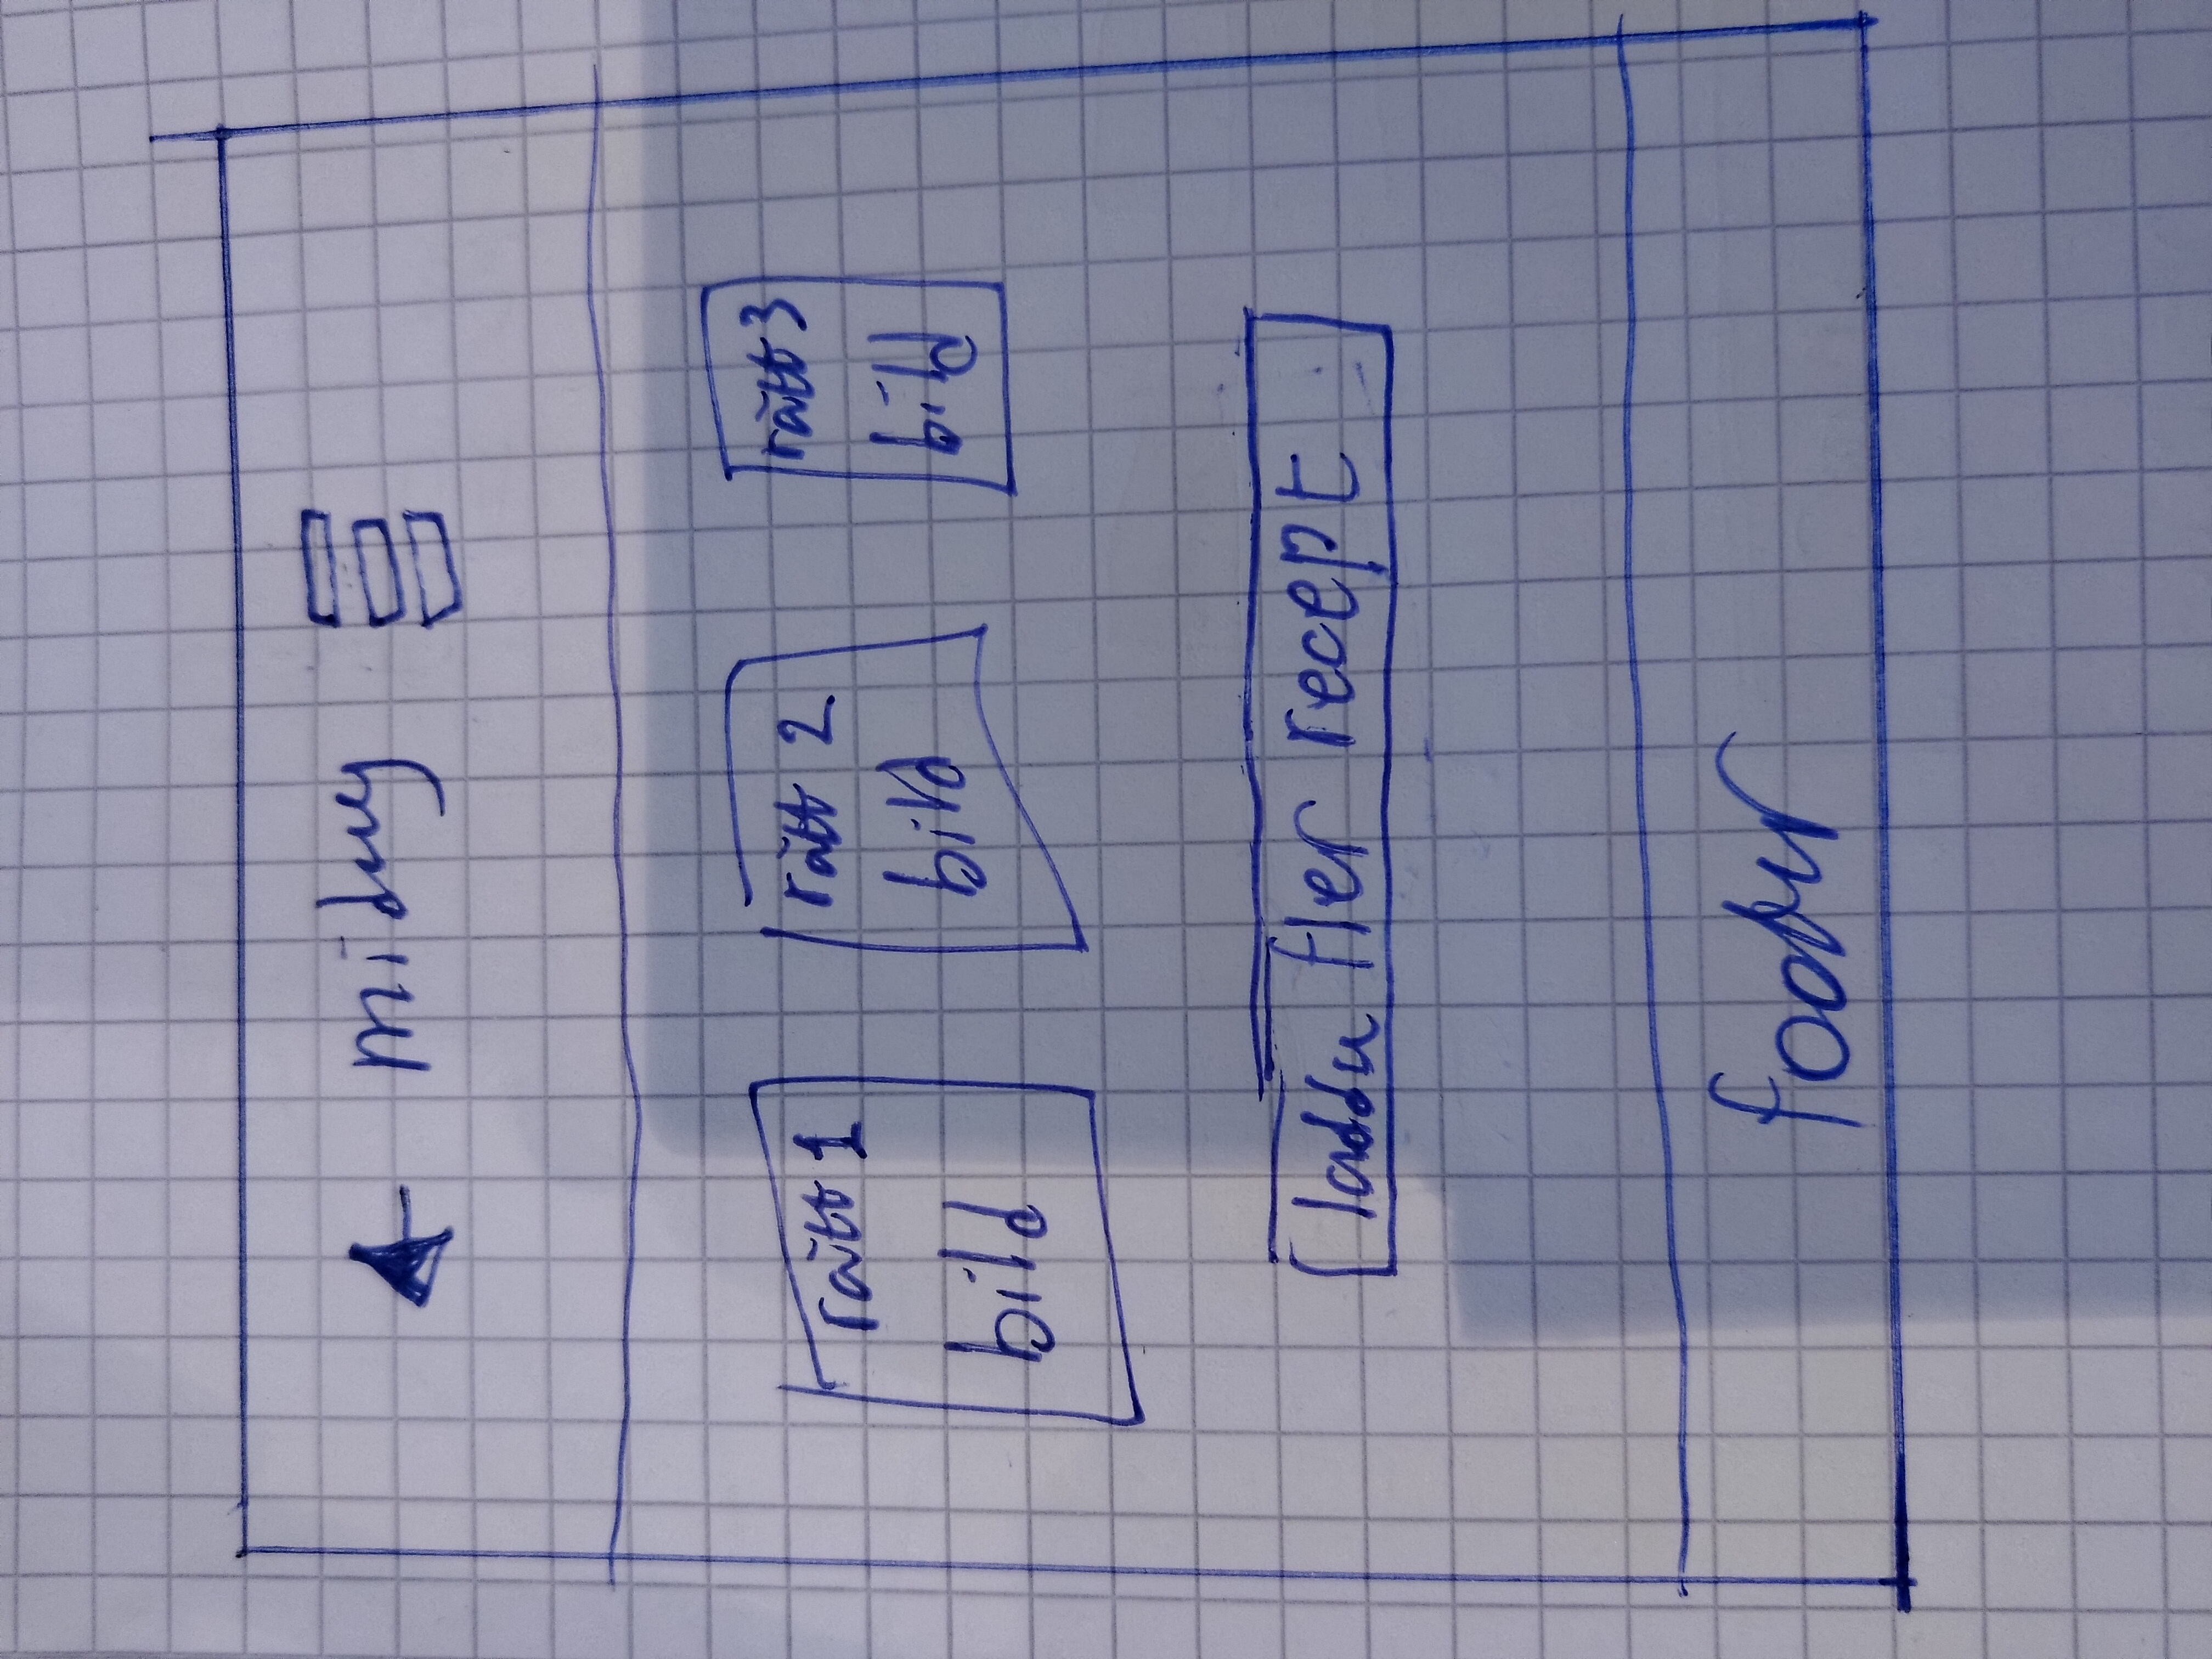 midag
rätt 1
bild
rätt 2
bild
rätt 3
bild
ladda fler recept
footer